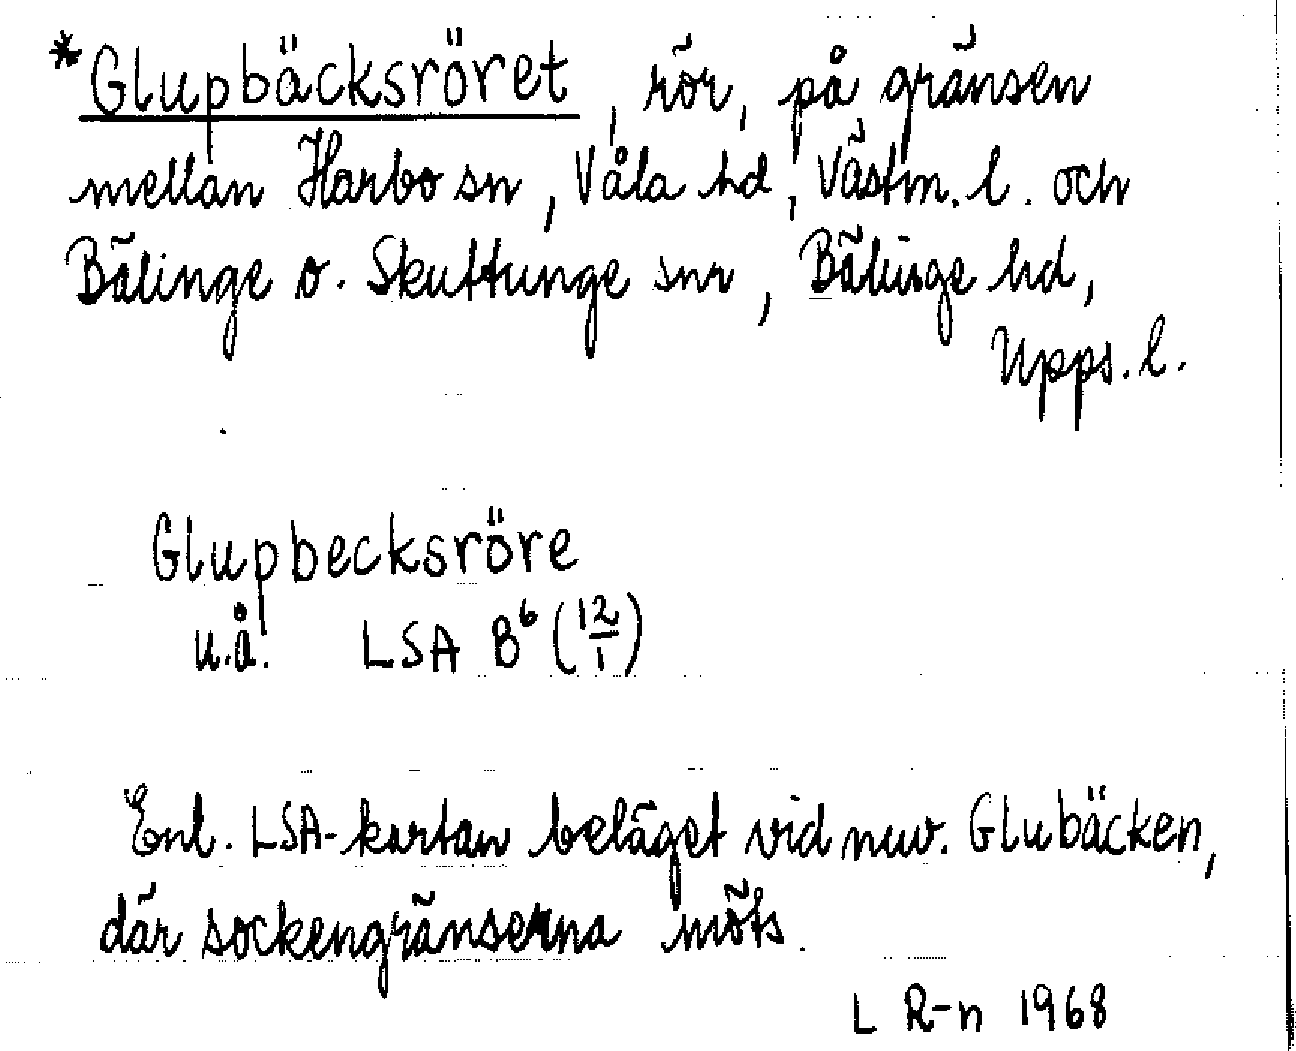 *Glupbäcksröret, rör, på gränsen
mellan Harbo sn, Våla hd, Västm. l. och
Bälinge o. Skuttunge snr, Bälinge hd,
Upps. l.
Glupbecksröre
u.å. LSA B⁶ (12/1)
Enl. LSA-kartan beläget vid nuv. Glubäcken,
där sockengränserna möts.
L R-n 1968